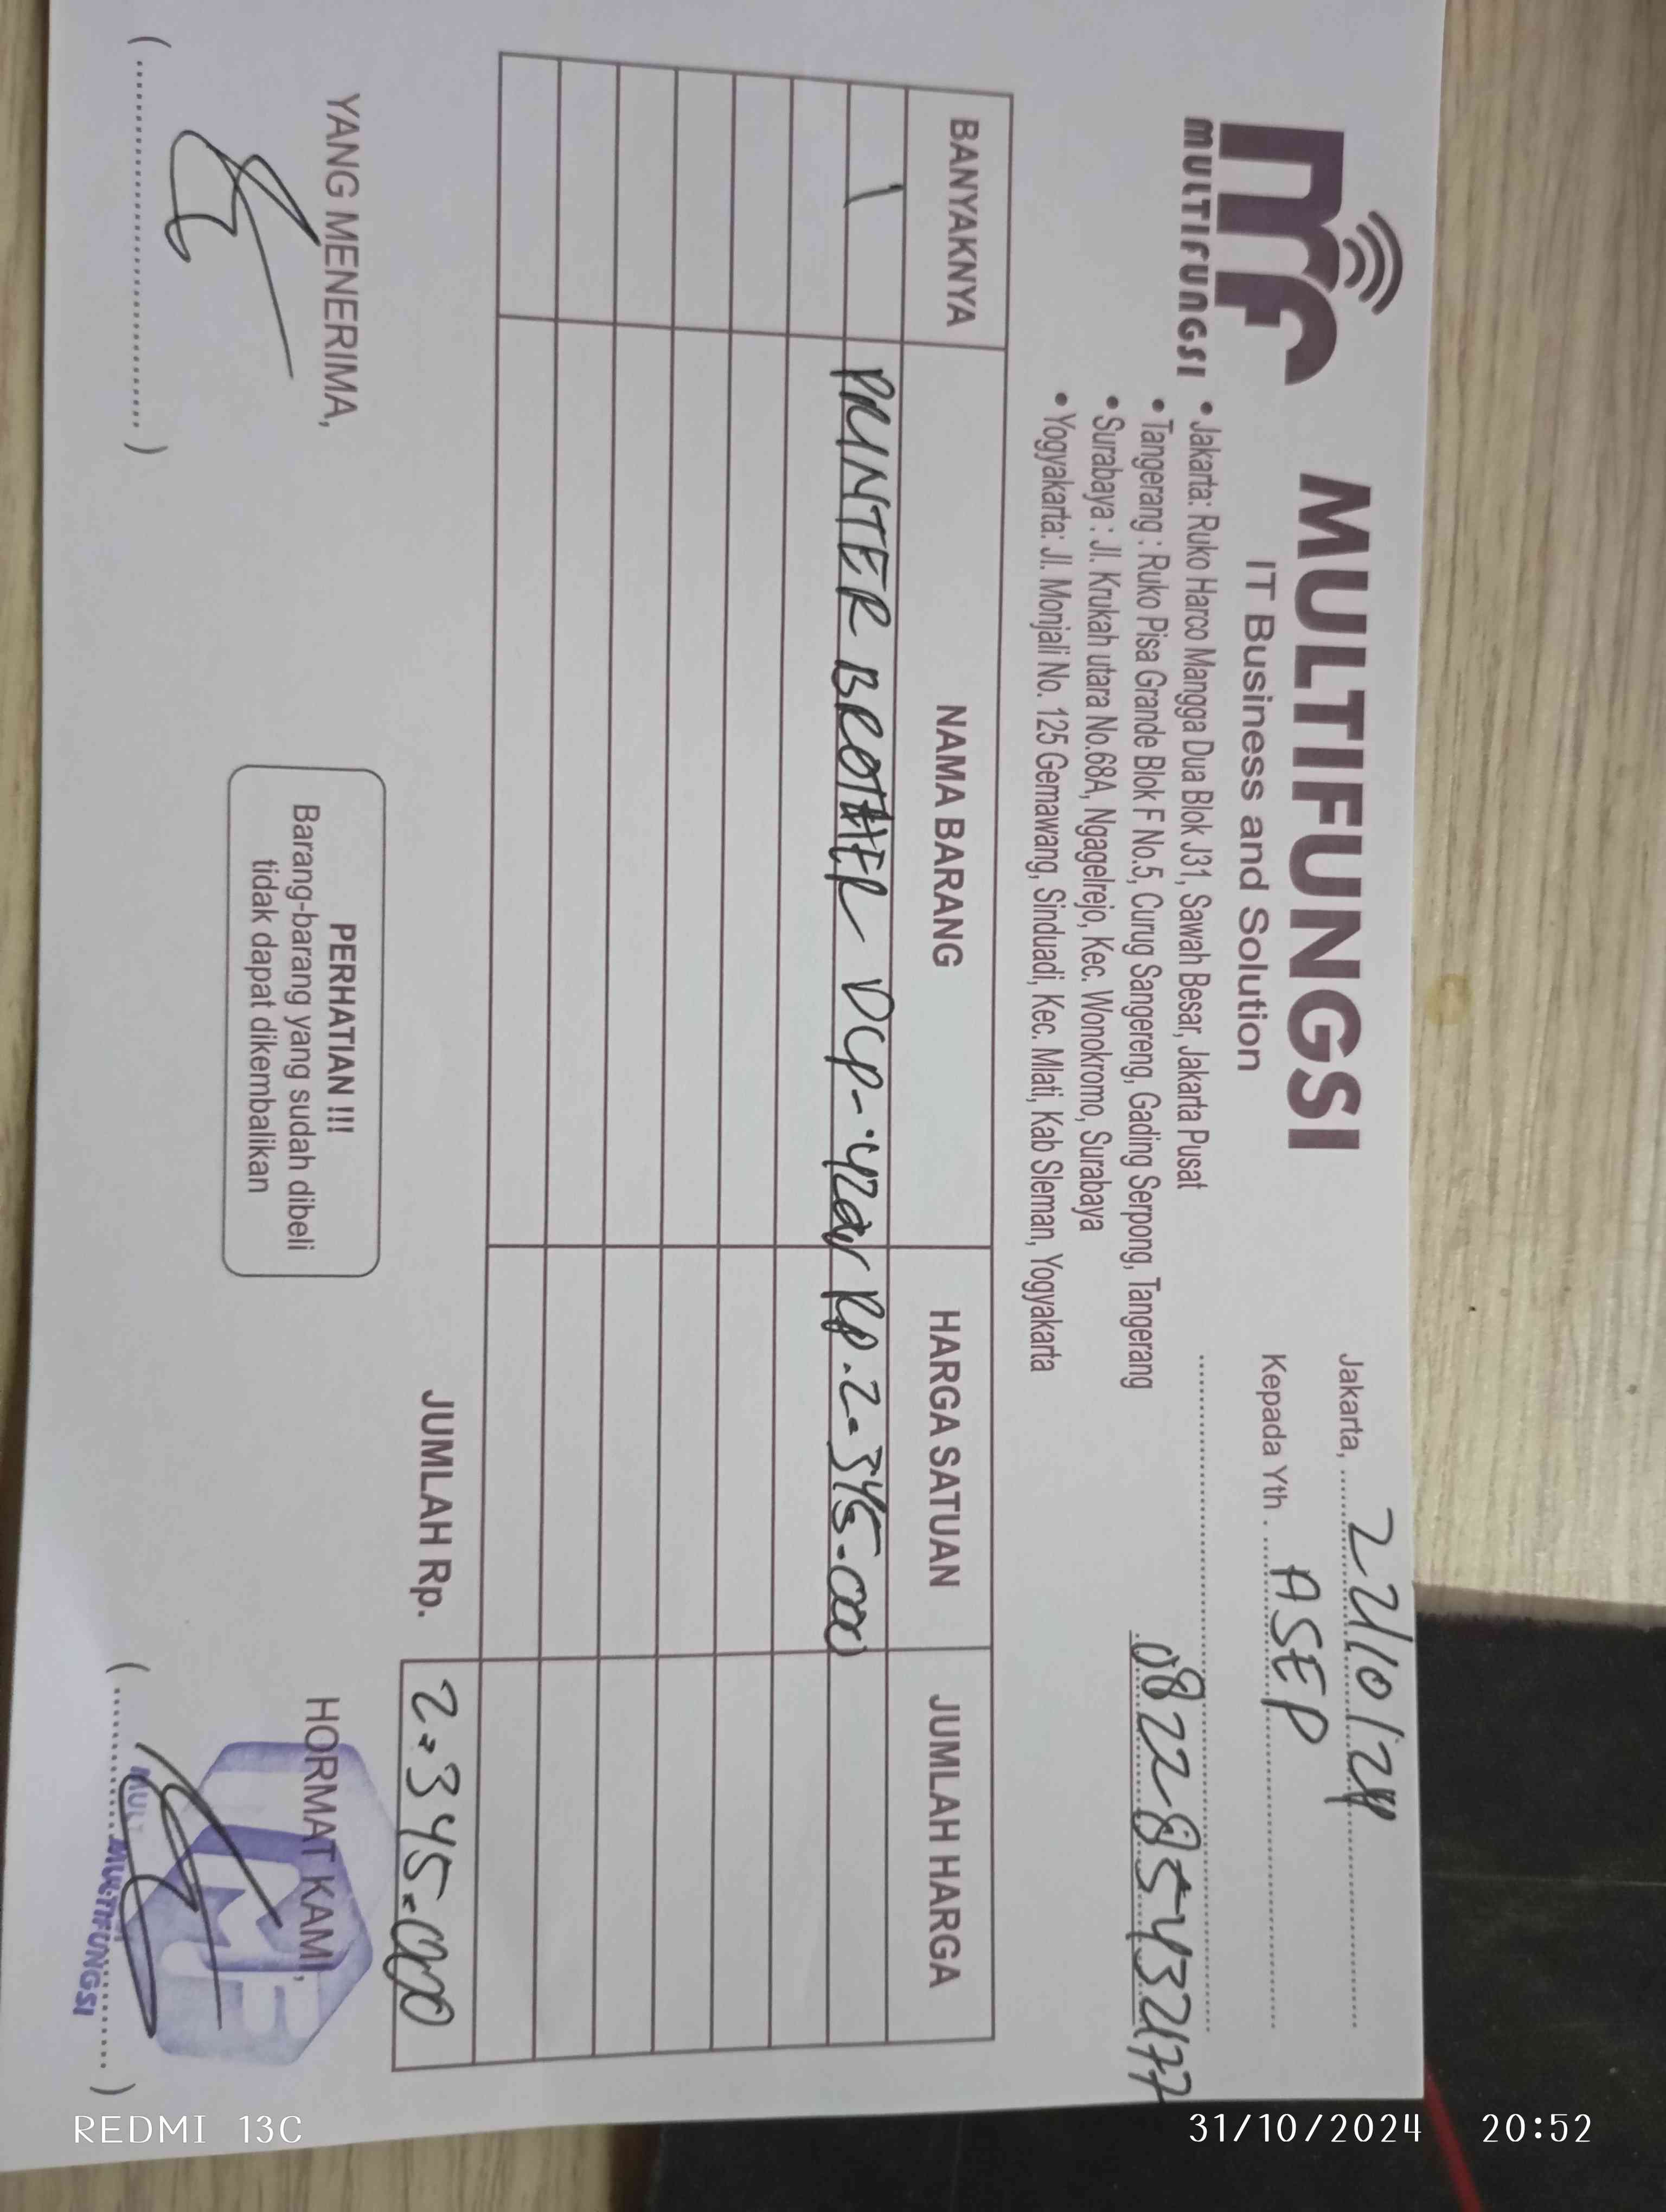 mf
MULTIFUNGSI
MULTIFUNGSI
IT Business and Solution
• Jakarta: Ruko Harco Mangga Dua Blok J31, Sawah Besar, Jakarta Pusat
• Tangerang : Ruko Pisa Grande Blok F No.5, Curug Sangereng, Gading Serpong, Tangerang
• Surabaya : Jl. Krukah utara No.68A, Ngagelrejo, Kec. Wonokromo, Surabaya
• Yogyakarta: Jl. Monjali No. 125 Gemawang, Sinduadi, Kec. Mlati, Kab Sleman, Yogyakarta
Jakarta, 22/10/24
Kepada Yth . ASEP
BANYAKNYA NAMA BARANG HARGA SATUAN JUMLAH HARGA
1 PRINTER BROTHER DCP- RP. 2.345.000
JUMLAH Rp. 2.345.000
YANG MENERIMA,
PERHATIAN !!!
Barang-barang yang sudah dibeli
tidak dapat dikembalikan
HORMAT KAMI,
MF
MULTIFUNGSI
REDMI 13C
31/10/2024 20:52